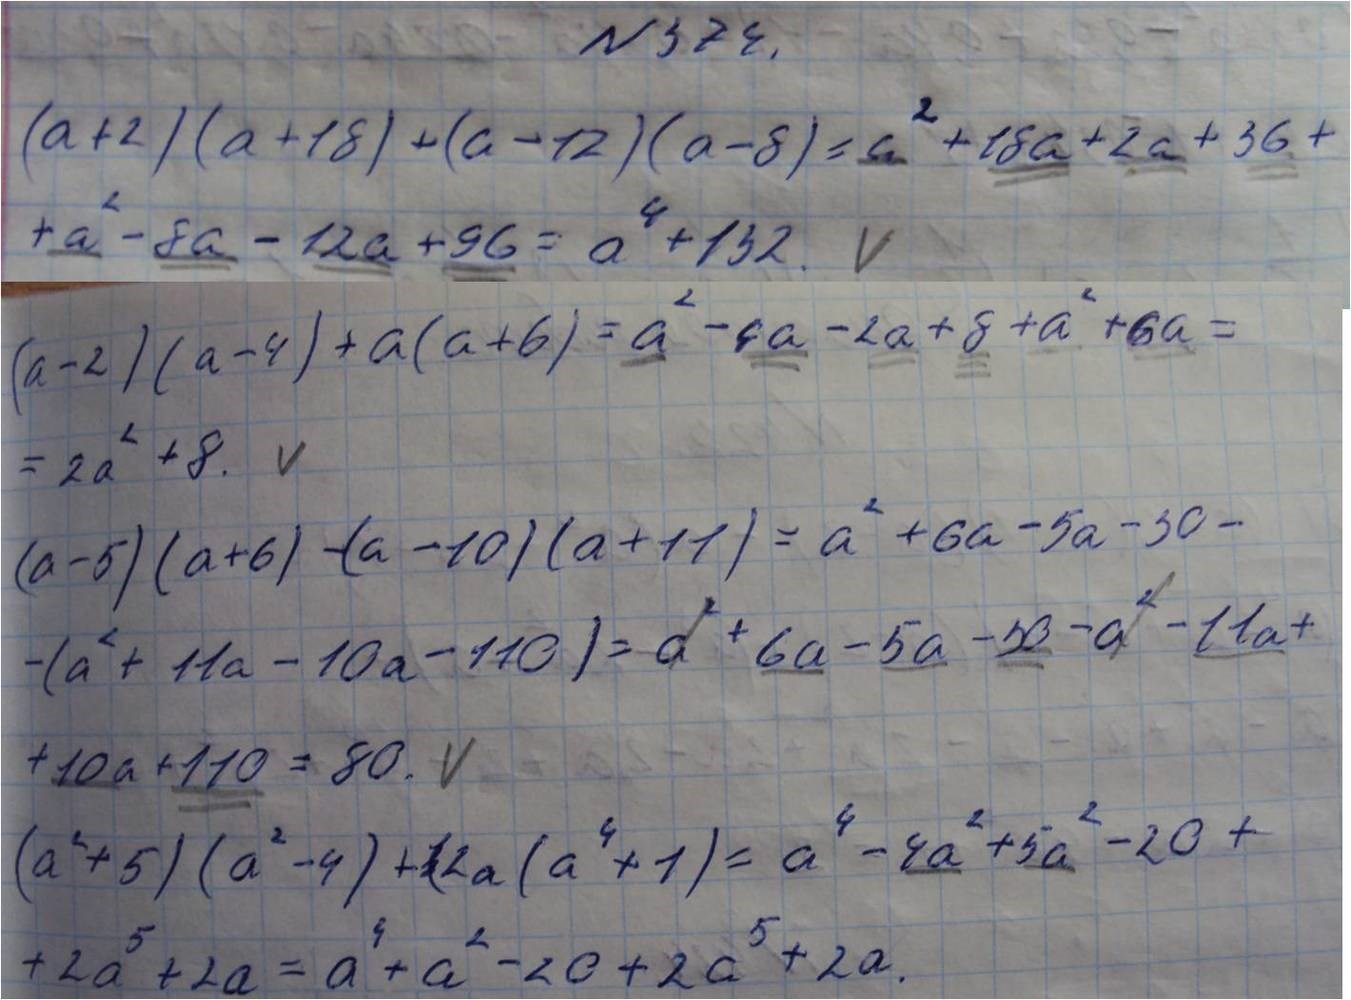 N 374.
(a+2)(a+18)+(a-12)(a-8)=a²+18a+2a+36+
+a²-8a-12a+96=a⁴+132. V
(a-2)(a-4)+a(a+6)=a²-4a-2a+8+a²+6a=
=2a²+8. V
(a-5)(a+6)-(a-10)(a+11)=a²+6a-5a-30-
-(a²+11a-10a-110)=a²+6a-5a-30-a²-11a+
+10a+110=80. V
(a²+5)(a²-4)+2a(a⁴+1)=a⁴-4a²+5a²-20+
+2a⁵+2a=a⁴+a²-20+2a⁵+2a.